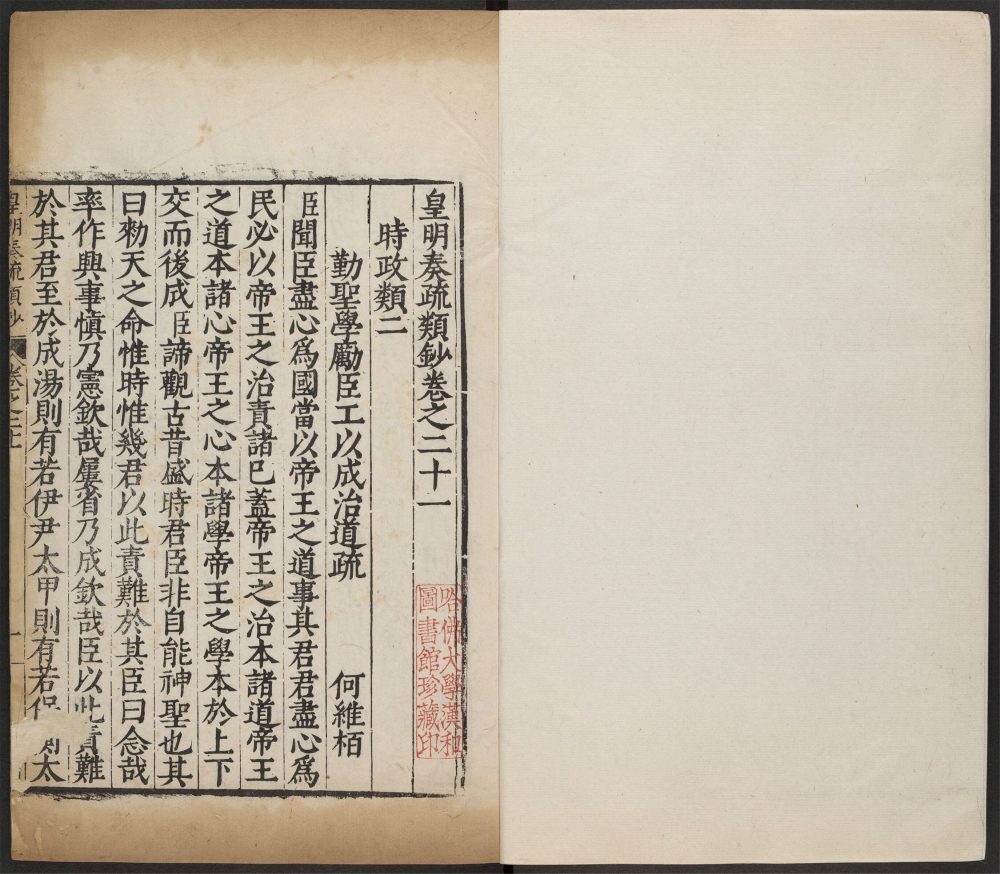 皇明奏疏類鈔卷之二十一
哈佛大學漢和
圖書館珍藏印
時政類二
勤聖學勵臣工以成治道疏 何維栢
臣聞臣盡心爲國當以帝王之道事其君君盡心爲
民必以帝王之治責諸已蓋帝王之治本諸道帝王
之道本諸心帝王之心本諸學帝王之學本於上下
交而後成臣諦觀古昔盛時君臣非自能神聖也其
曰勑天之命惟時惟幾君以此責難於其臣曰念哉
率作興事愼乃憲欽哉屢省乃成欽哉臣以此責難
於其君至於成湯則有若伊尹太甲則有若保 太
皇明奏疏類鈔 卷之二十 一